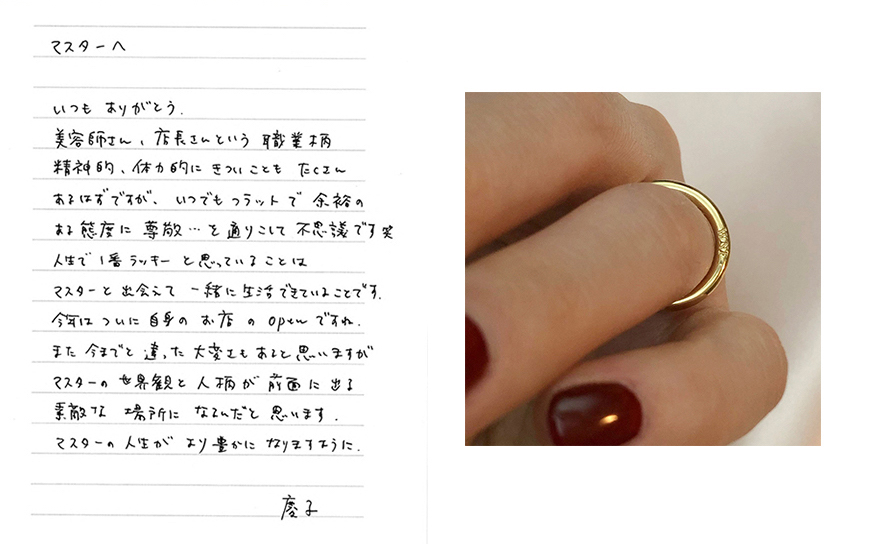 マスターへ
いつも ありがとう.
美容師さん、店長さんという 職業柄
精神的、体力的に きついことも たくさん
あるはずですが、いつでもフラットで 余裕の
ある態度に 尊敬…を通りこして 不思議です笑
人生で 1番ラッキーと思っていることは
マスターと出会えて 一緒に生活できていることです.
今年は ついに自身の お店の openですね.
また 今までと 違った 大変さもあると思いますが
マスターの世界観と人柄が 前面に出る
素敵な 場所に なるんだと思います.
マスターの人生が より豊かに なりますように.
慶子